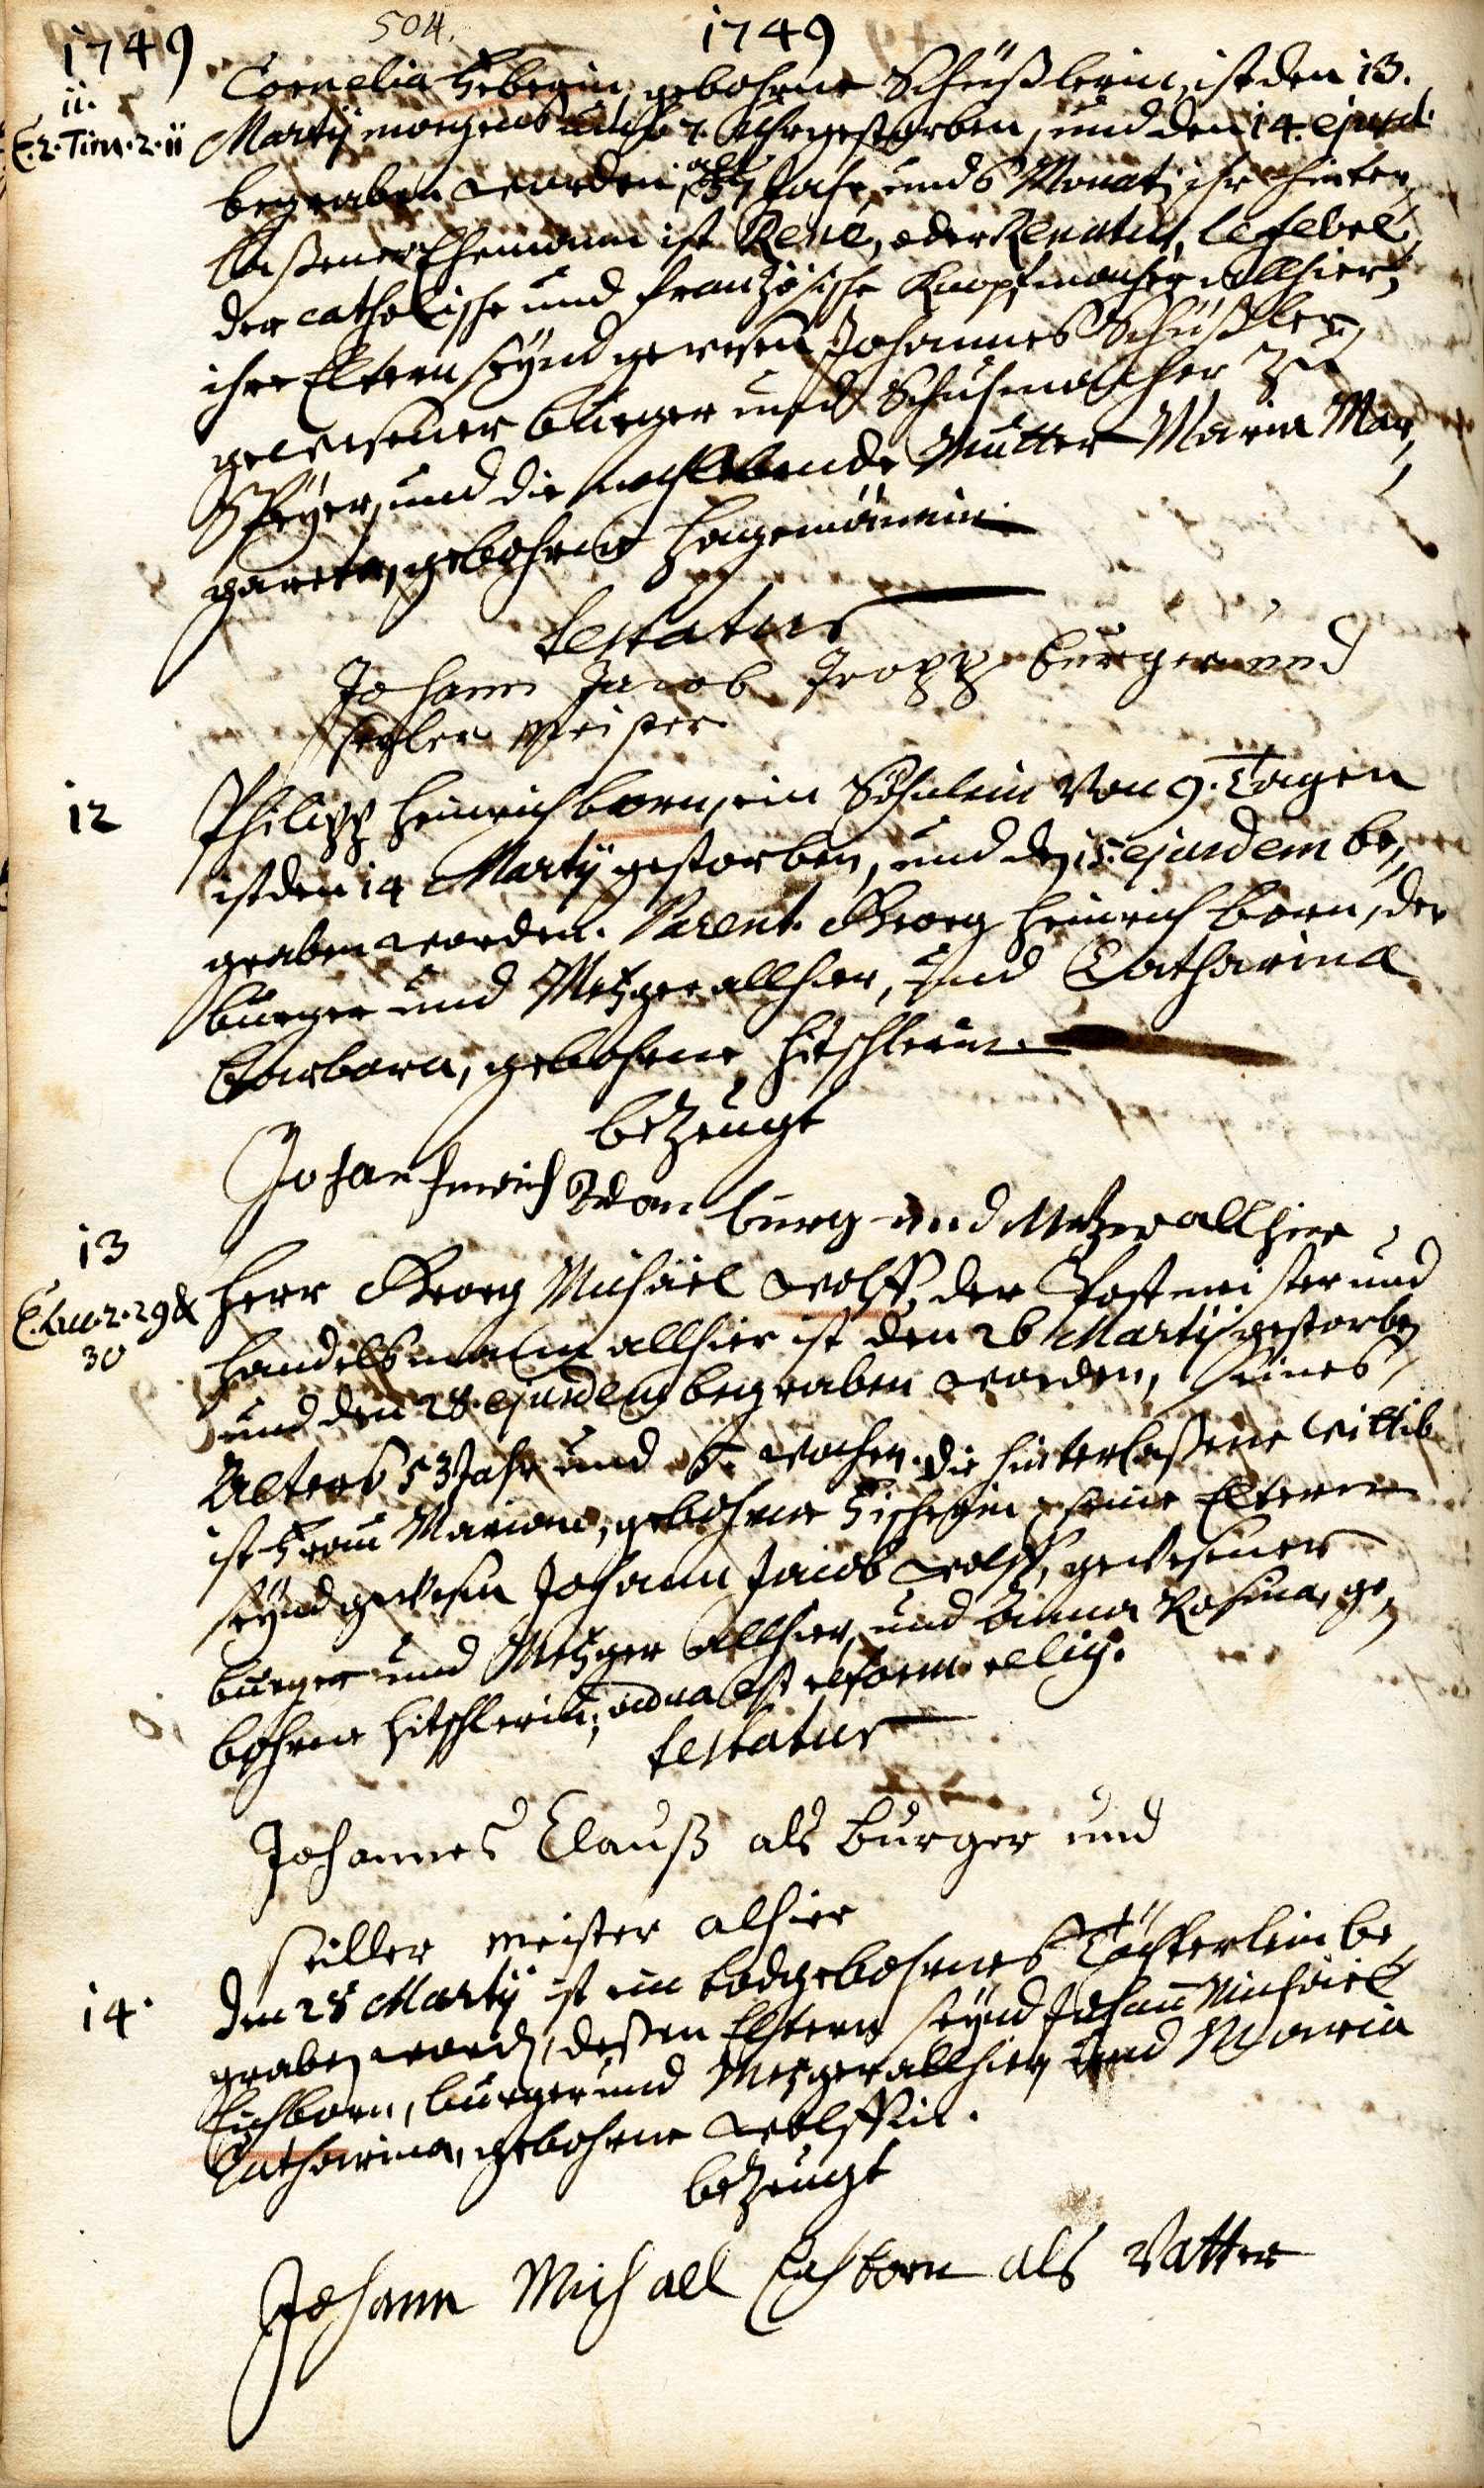 504.
1749 1749
11.
E. 2. Tim. 2. 11
Cornelia gebohrne Schüßlerin, ist den 13.
Martÿ morgens umb 7. Uhr gestorben, und den 14. ejusd.
begraben worden, alt Jahr, und 6 Monat; ihr hinter,
laßener Ehemann ist René, oder Renatus, lefebre
der catholische und französische Knopfmacher allhier,
ihre Eltern seynd gewesen Johannes Schüßler,
gewesener burger und Schuhmacher zu
Speyer, und die nachlebende Mutter Maria Mar,
gareta, gebohrne Hagemännin.
testatur
Johann Jacob Tropp burger und
seyler Meister
12
Philipp Heinrich born, ein Söhnlein von 9. Tagen
ist den 14 Martÿ gestorben, und den 15. ejusdem be,
graben worden. Parent. Georg Heinrich born, der
burger und Metzger allhier, und Catharina
Barbara, gebohrne Hitschlerin.
bezeugt
Johan Henrich burg und Metzer allhier
13
E. Luc. 2. 29 &
30
Herr Georg Michäel Wolff, der Postmeister und
Handelsmann allhier ist den 26 Martÿ gestorben
und den 28. ejusdem begraben worden, seines
Alters 53 Jahr und 6. wochen. die hinterlaßene wittib
ist Frau Maria, gebohrne Fischerin, seine Eltern
seynd gewesen Johann Jacob Wolff, gewesener
burger und Metzger allhier, und Anna Rosina, ge,
bohrne Hitschlerin; vidua est reform. relig.
testatur
Johannes Clauß als burger und
seiller meister alhier
14.
Den 28 Martÿ ist ein todgebohrnes Töchterlein be
graben word, deßen Eltern seynd Johann Michäel
Eichborn, burger und Metzger allhier, und Maria
Catharina, gebohrne Wolffin.
bezeugt
Johann Michael Eichborn als Vatter